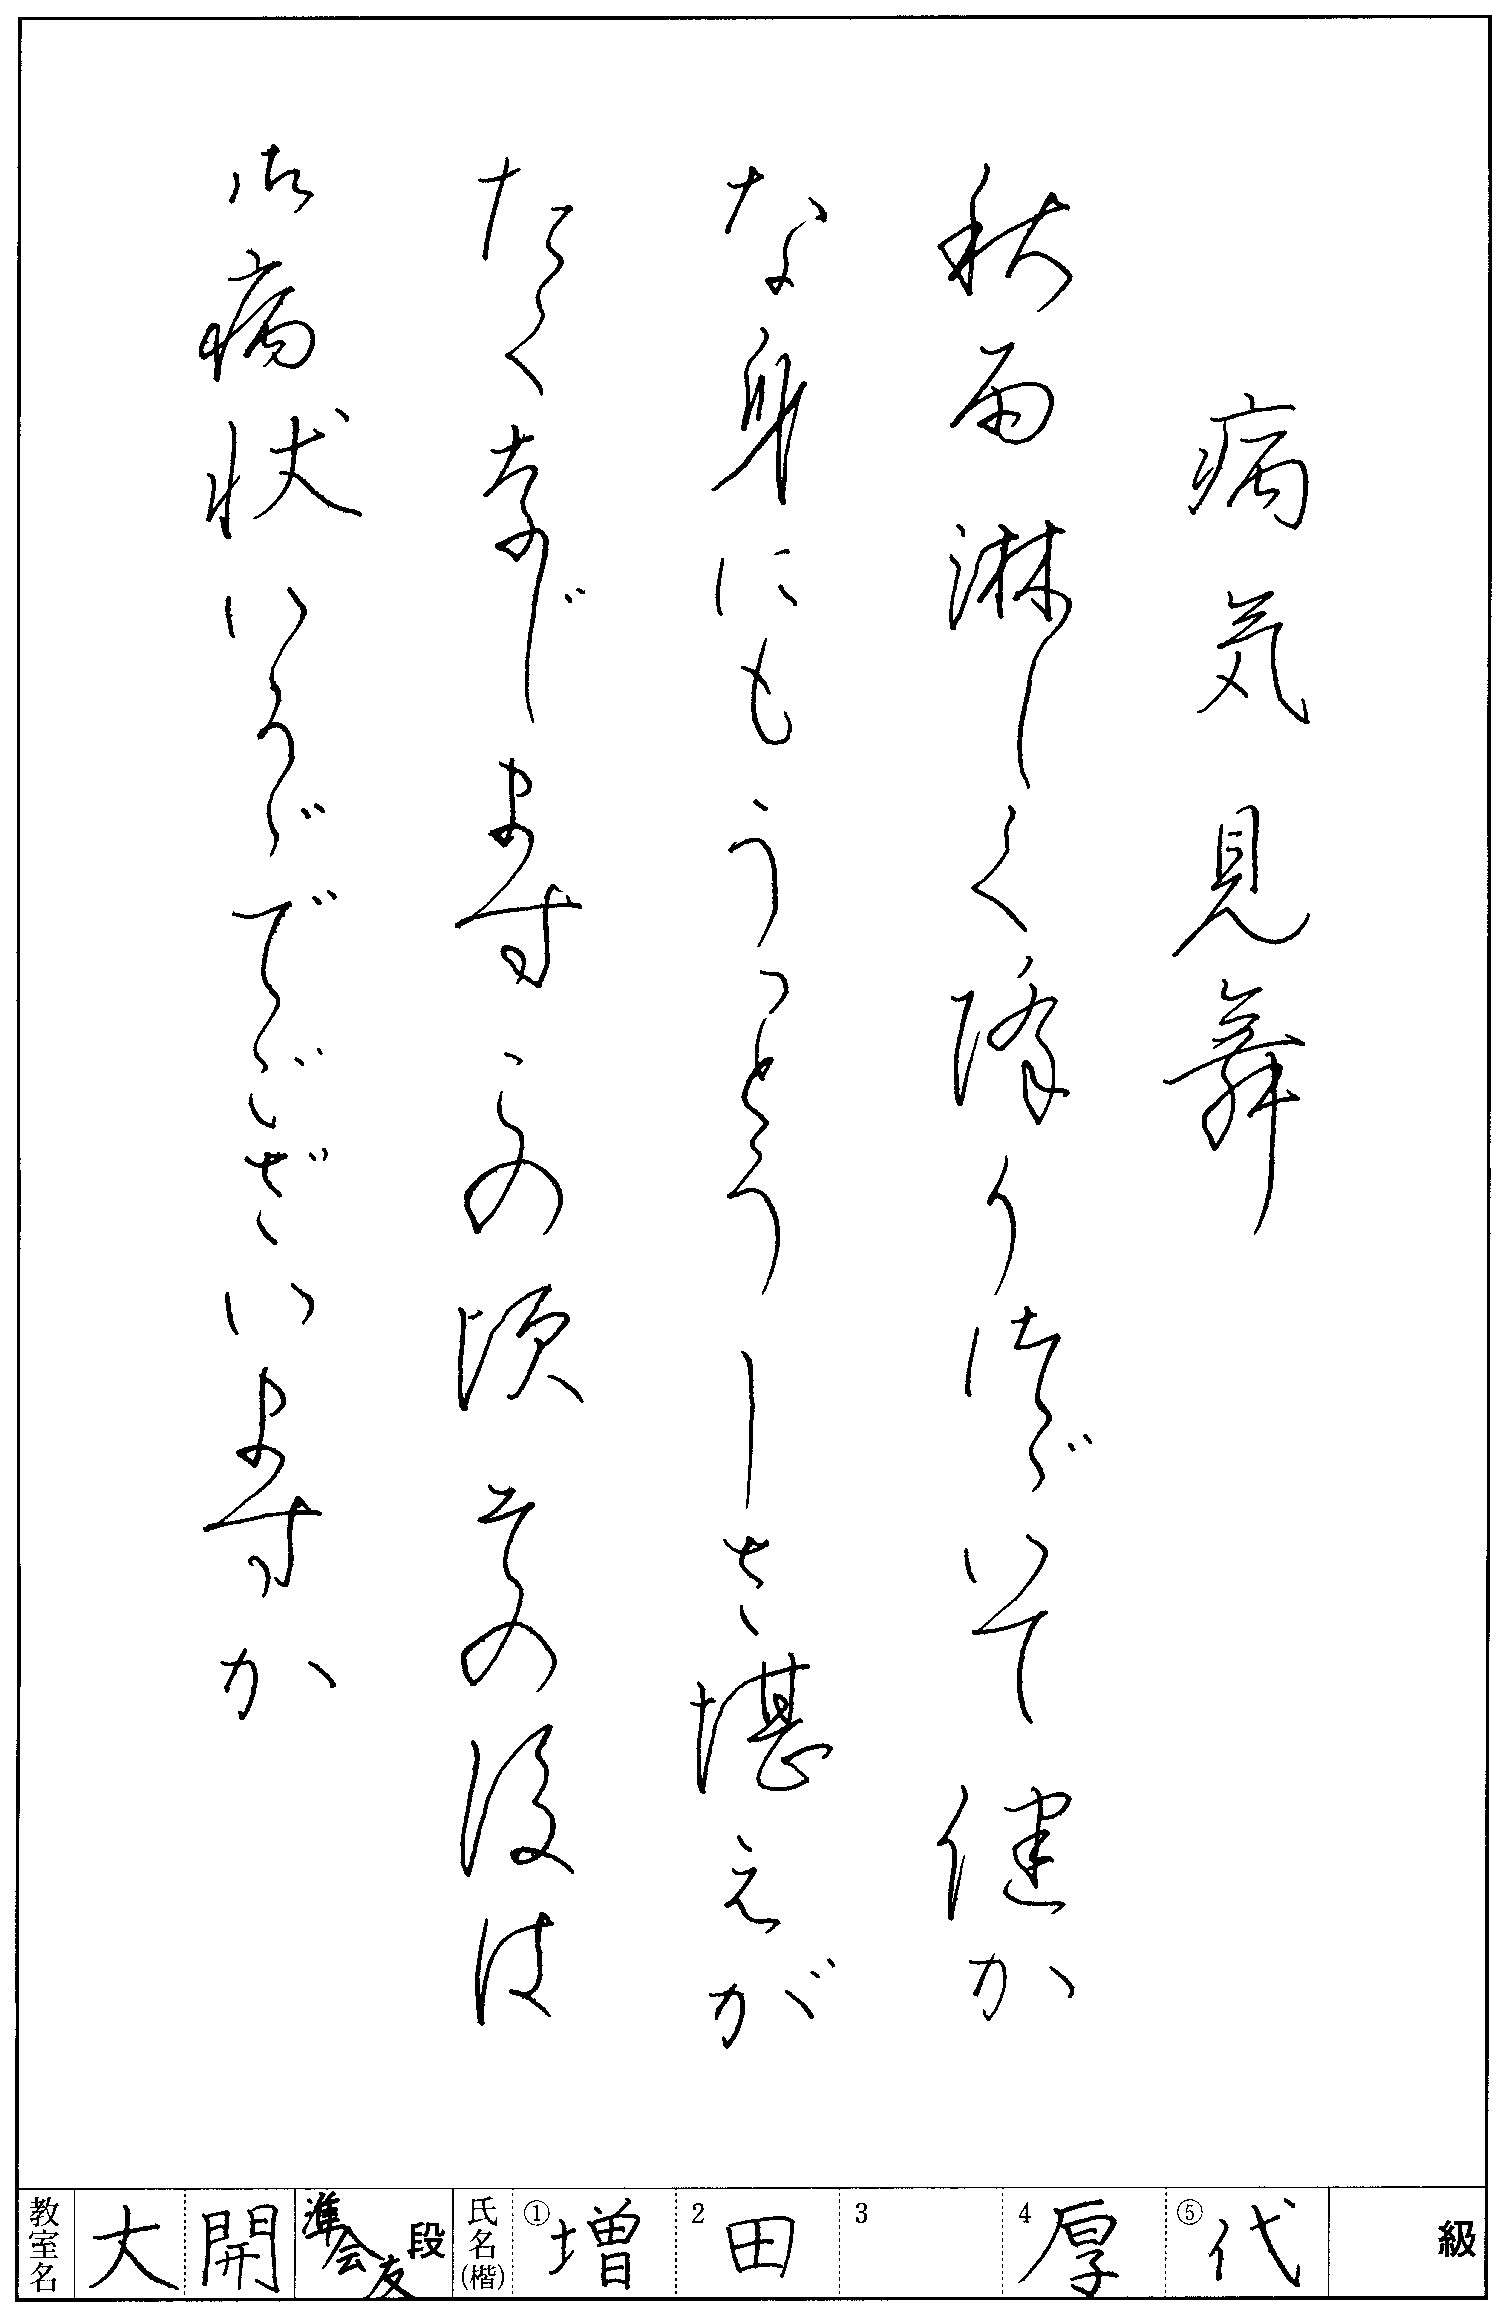 病気見舞
秋雨淋しく降りつづいて健か
な身にもうっとうしさ堪えが
たく存じますこの頃その後は
御病状いかがでございますか
教室名 大開 準会友 段 氏名(楷) ①増 2田 3 4厚 ⑤代 級